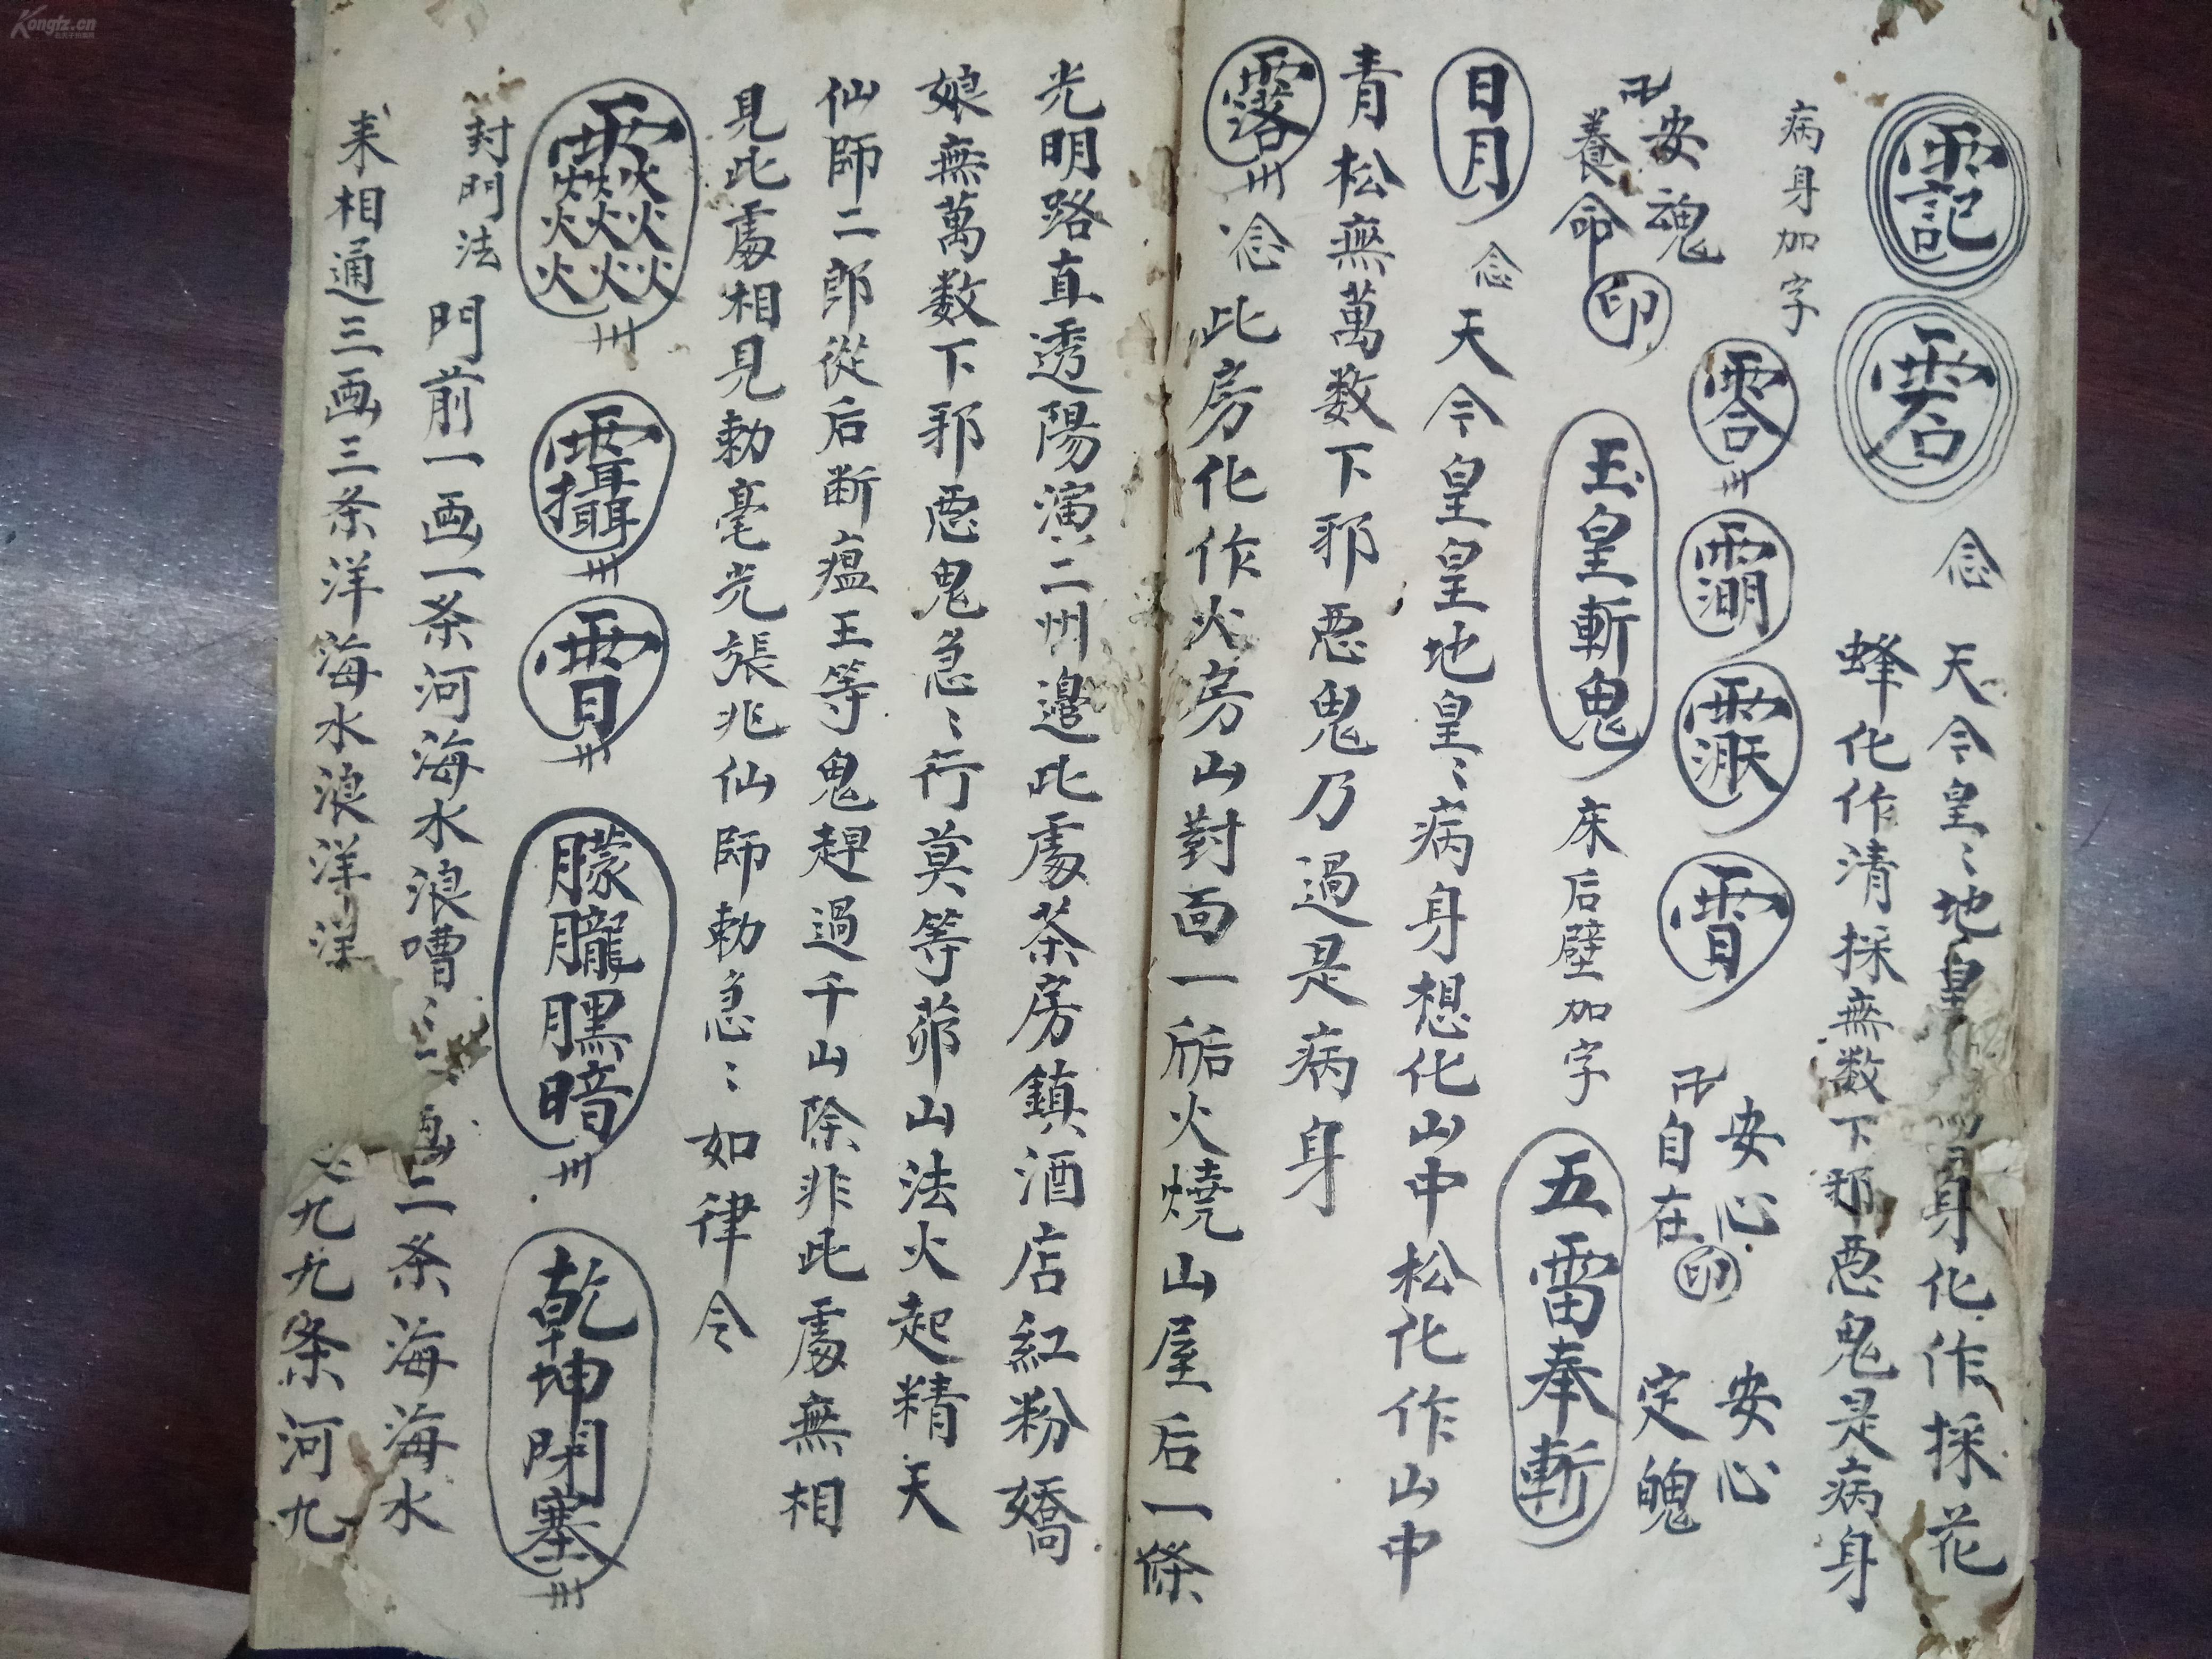 念 天令皇〻地皇 身化作採花
蜂化作清採無数下邪恶鬼是病身
病身加字
卍安魂
養命 印
卍安心
自在 印
安心
定魄
玉皇斬鬼 床后壁加字 五雷奉斬
日月 念 天令皇皇地皇〻病身想化山中松化作山中
青松無萬数下邪恶鬼乃過是病身
念 此房化作火房山對面一 火燒山屋后一條
光明路直透陽演二州邊此處茶房鎮酒店紅粉嬌
娘無萬数下邪恶鬼急〻行莫等茆山法火起精天
仙師二郎從后断瘟王等鬼趕過千山除非此處無相
見此處相見勅毫光張兆仙師勅急〻如律令
朦朧 暗 乾坤閉塞
封門法 門前一画一条河海水浪嘈〻二画二条海海水
来相通三画三条洋海水浪洋洋 九九条河九
Kongfz.cn